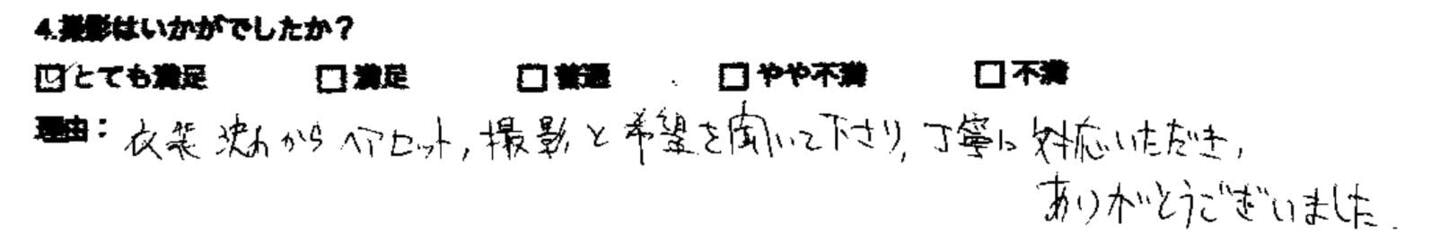 4.撮影はいかがでしたか？
☑とても満足 □満足 □普通 □やや不満 □不満
理由：衣装決めからヘアセット,撮影と希望を聞いて下さり,丁寧に対応いただき,
ありがとうございました.